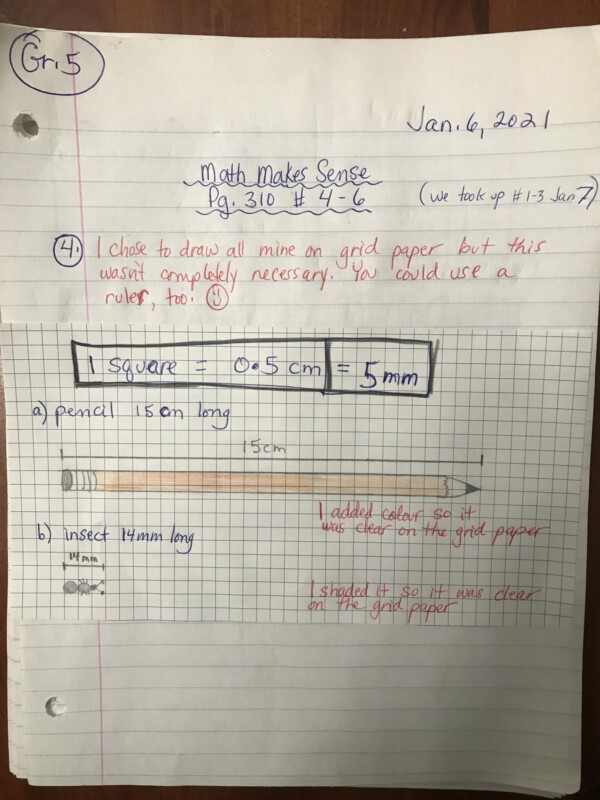 Gr. 5
Jan. 6, 2021
Math Makes Sense
Pg. 310 # 4-6
(we took up #1-3 Jan 7)
4. I chose to draw all mine on grid paper but this
wasn't completely necessary. You could use a
ruler, too.
1 square = 0.5 cm = 5mm
a) pencil 15 cm long
15cm
I added colour so it
was clear on the grid paper
b) insect 14mm long
14mm
I shaded it so it was clear
on the grid paper